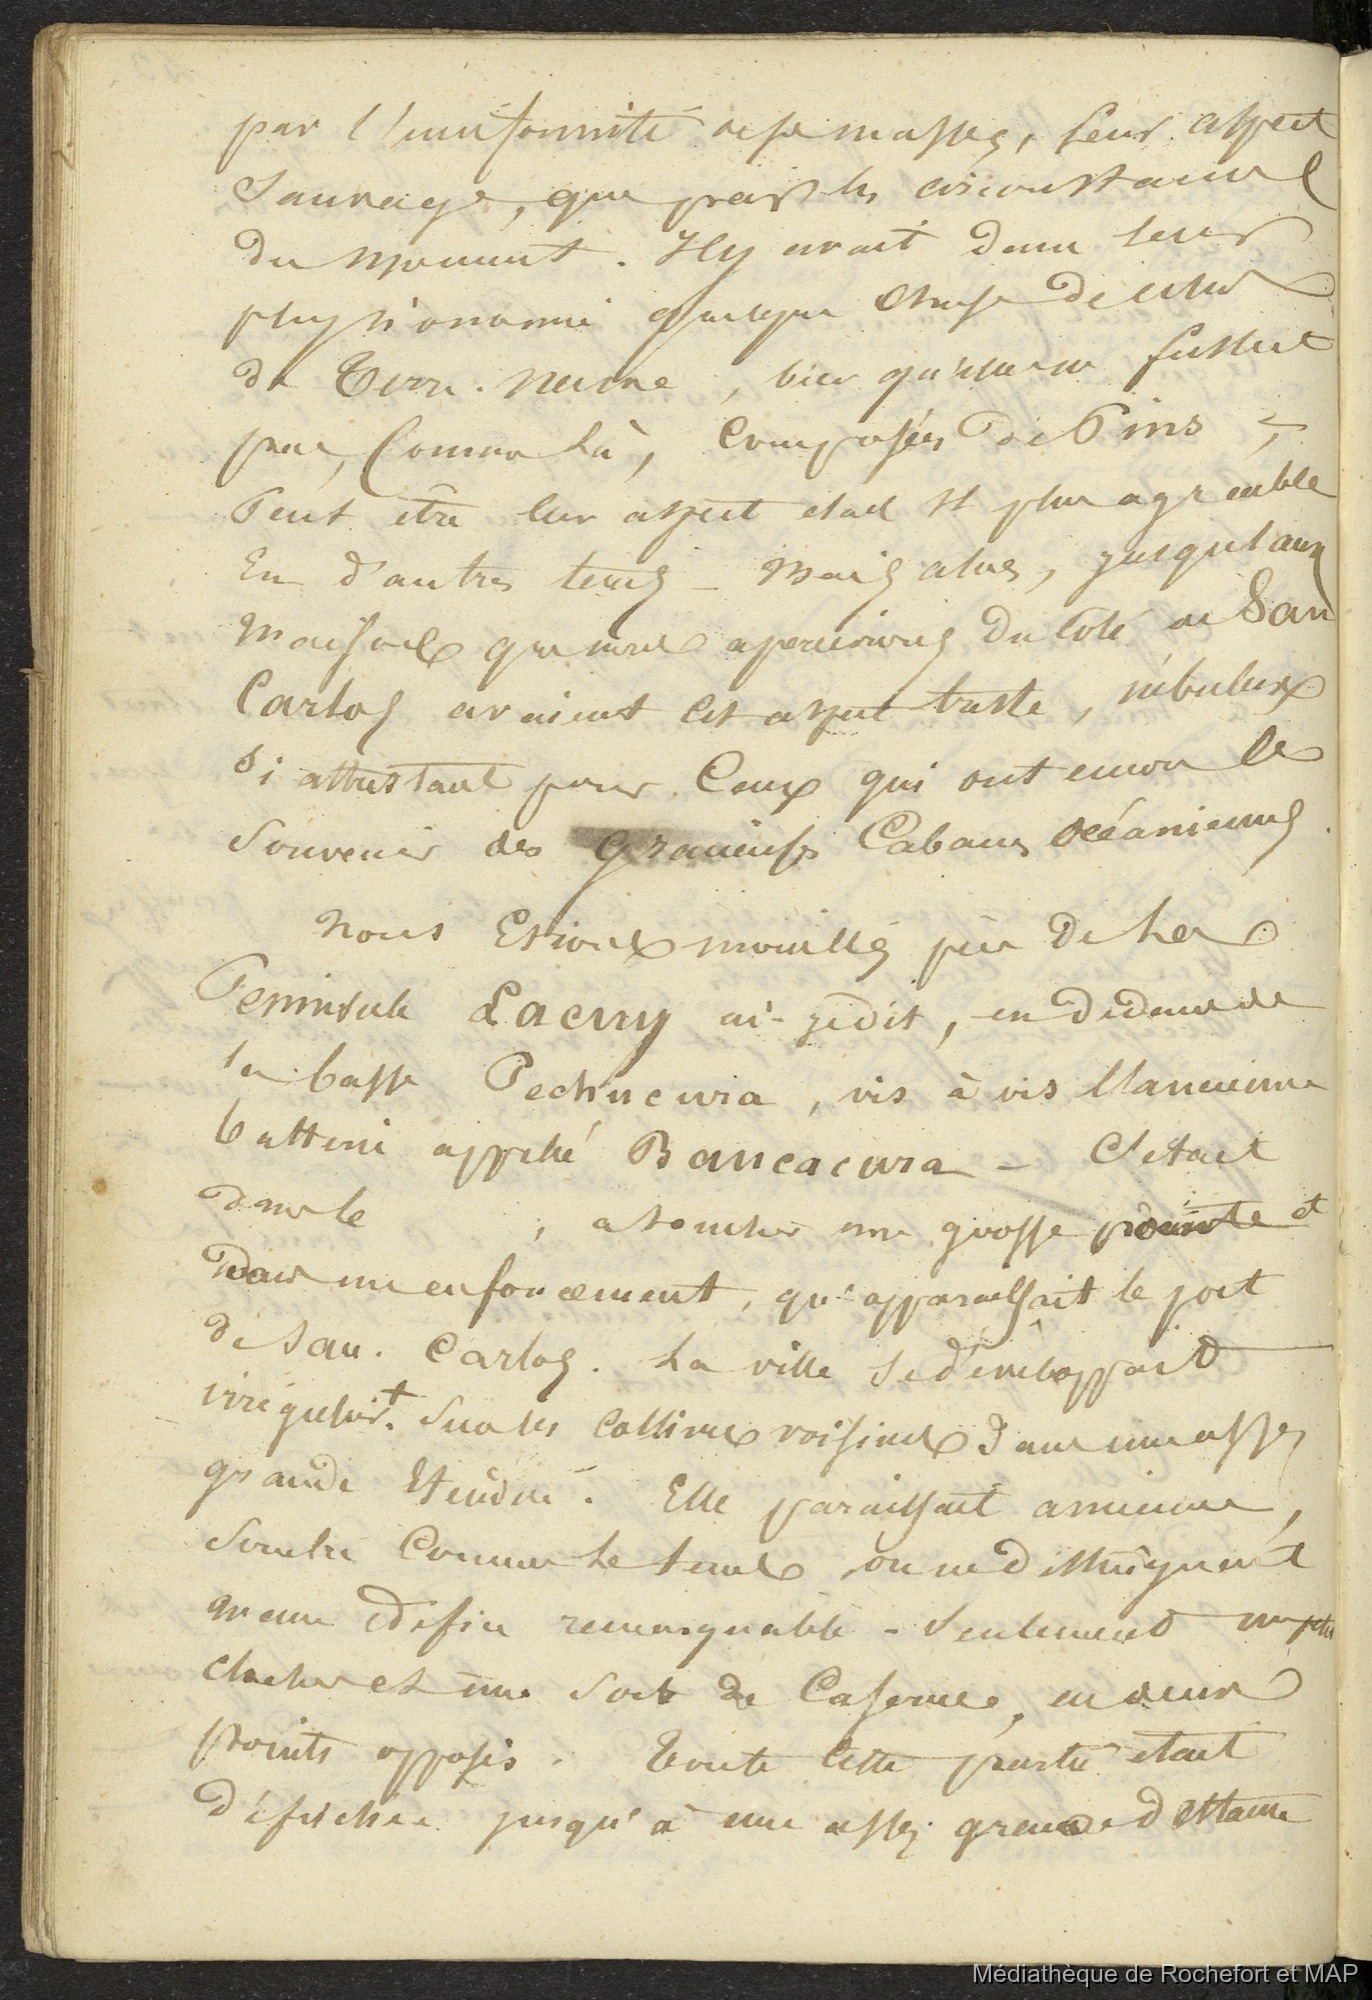 par l'uniformité de ses masses, leur aspect
Sauvage, que par les circonstances
du moment. Il y avait dans leur
physionomie quelque chose de celui
de Terre-Neuve, bien qu'elles ne fussent
pas, Comme là, Composées de Pins ;
Peut être leur aspect était il plus agréable
En d'autres tems _ Mais alors, jusqu'aux
Maisons que nous apercevions du Coté de San
Carlos avaient cet aspect triste, nébuleux
Si attristant pour Ceux qui ont encore le
Souvenir des gracieuses Cabanes Océaniennes.
Nous Etions mouillés près de La
Peninsule Lacuy, en dedans de
la basse Pechucura, vis à vis l'ancienne
batterie appelée Bancacura _ C'était
dans le , a toucher une grosse pointe et
dans un enfoncement, qu'apparaissait le port
de San. Carlos. La ville Se développait
irrégulièrt. Sur les Collines voisines dans une assez
grande Etendue. Elle paraissait ancienne,
Sombre Comme le tems on ne distinguait
aucun édifice remarquable - Seulement un petit
clocher et une Sorte de Caserne, en deux
points opposés. Toute Cette partie était
défrichée jusqu'à une assez grande distance
Médiathèque de Rochefort et MAP